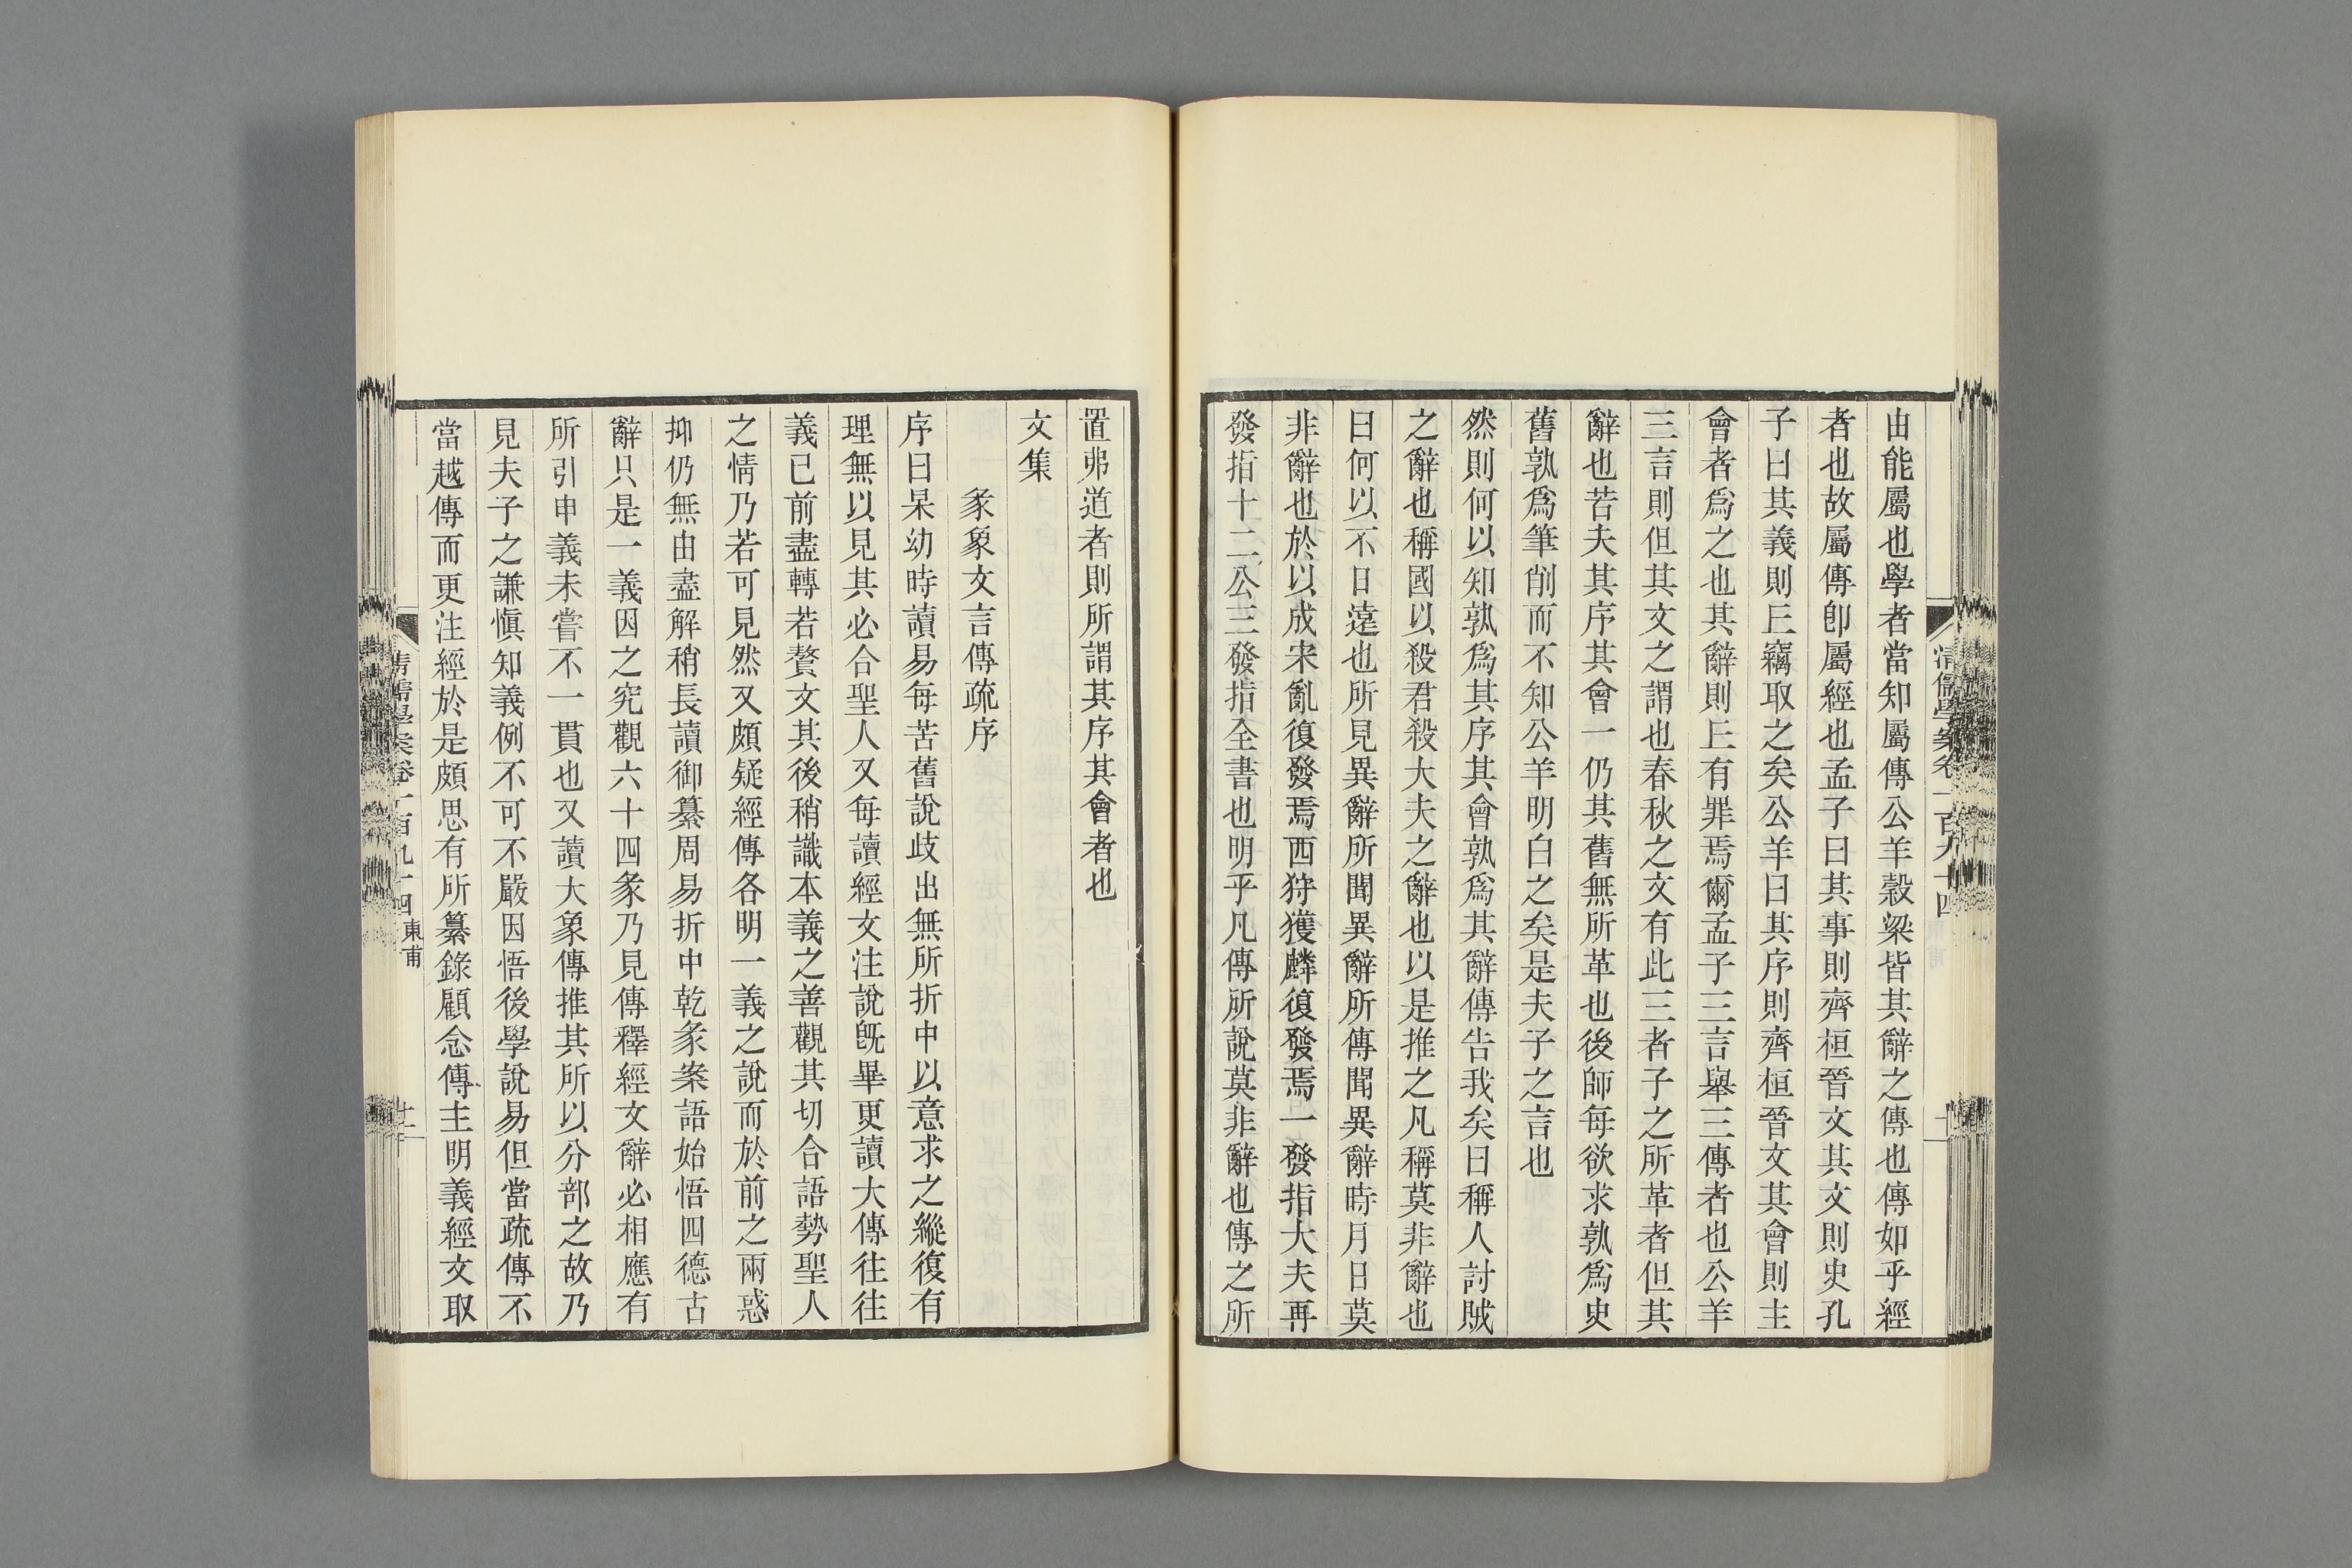 由能屬也學者當知屬傳公羊穀梁皆其辭之傳也傳如乎經
者也故屬傳卽屬經也孟子曰其事則齊桓晉文其文則史孔
子曰其義則丘竊取之矣公羊曰其序則齊桓晉文其會則主
會者爲之也其辭則丘有罪焉爾孟子三言舉三傳者也公羊
三言則但其文之謂也春秋之文有此三者子之所革者但其
辭也若夫其序其會一仍其舊無所革也後師每欲求孰爲史
舊孰爲筆削而不知公羊明白之矣是夫子之言也
然則何以知孰爲其序其會孰爲其辭傳告我矣曰稱人討賊
之辭也稱國以殺君殺大夫之辭也以是推之凡稱莫非辭也
曰何以不日遠也所見異辭所聞異辭所傳聞異辭時月日莫
非辭也於以成宋亂復發焉西狩獲麟復發焉一發指大夫再
發指十二公三發指全書也明乎凡傳所說莫非辭也傳之所
清儒學案卷一百九十四
置弗道者則所謂其序其會者也
文集
彖象文言傳疏序
序曰杲幼時讀易每苦舊說歧出無所折中以意求之縱復有
理無以見其必合聖人又每讀經文注說旣畢更讀大傳往往
義已前盡轉若贅文其後稍識本義之善觀其切合語勢聖人
之情乃若可見然又頗疑經傳各明一義之說而於前之兩惑
抑仍無由盡解稍長讀御纂周易折中乾彖案語始悟四德古
辭只是一義因之究觀六十四彖乃見傳釋經文辭必相應有
所引申義未嘗不一貫也又讀大象傳推其所以分部之故乃
見夫子之謙愼知義例不可不嚴因悟後學說易但當疏傳不
當越傳而更注經於是頗思有所纂錄顧念傳主明義經文取
清儒學案卷一百九十四 東甫